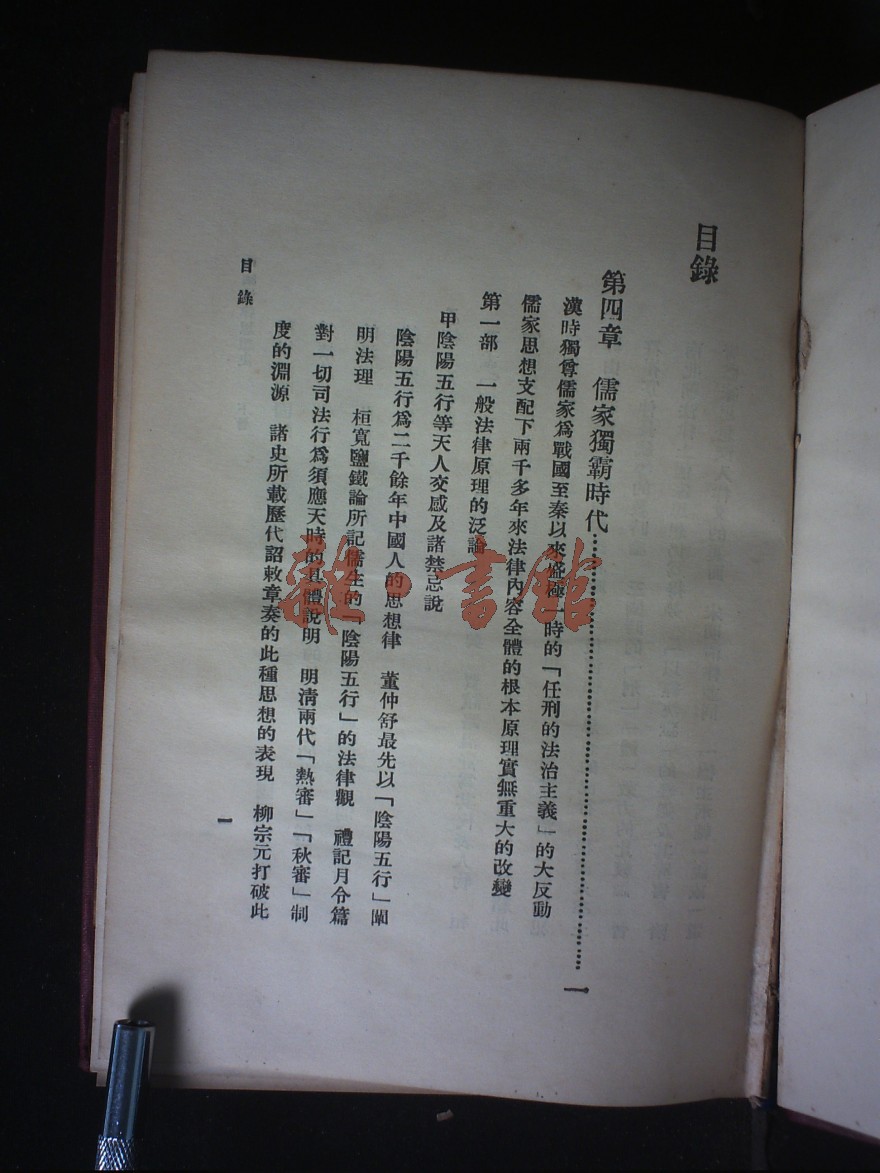 目錄
第四章　儒家獨霸時代……………………一
漢時獨尊儒家爲戰國至秦以來盛極一時的「任刑的法治主義」的大反動
儒家思想支配下兩千多年來法律內容全體的根本原理實無重大的改變
第一部　一般法律原理的泛論
甲陰陽五行等天人交感及諸禁忌說
陰陽五行爲二千餘年中國人的思想律　董仲舒最先以「陰陽五行」闡
明法理　桓寬鹽鐵論所記儒生的「陰陽五行」的法律觀　禮記月令篇
對一切司法行爲須應天時的具體說明　明清兩代「熱審」「秋審」制
度的淵源　諸史所載歷代詔敕章奏的此種思想的表現　柳宗元打破此
目錄
一
雜·書館